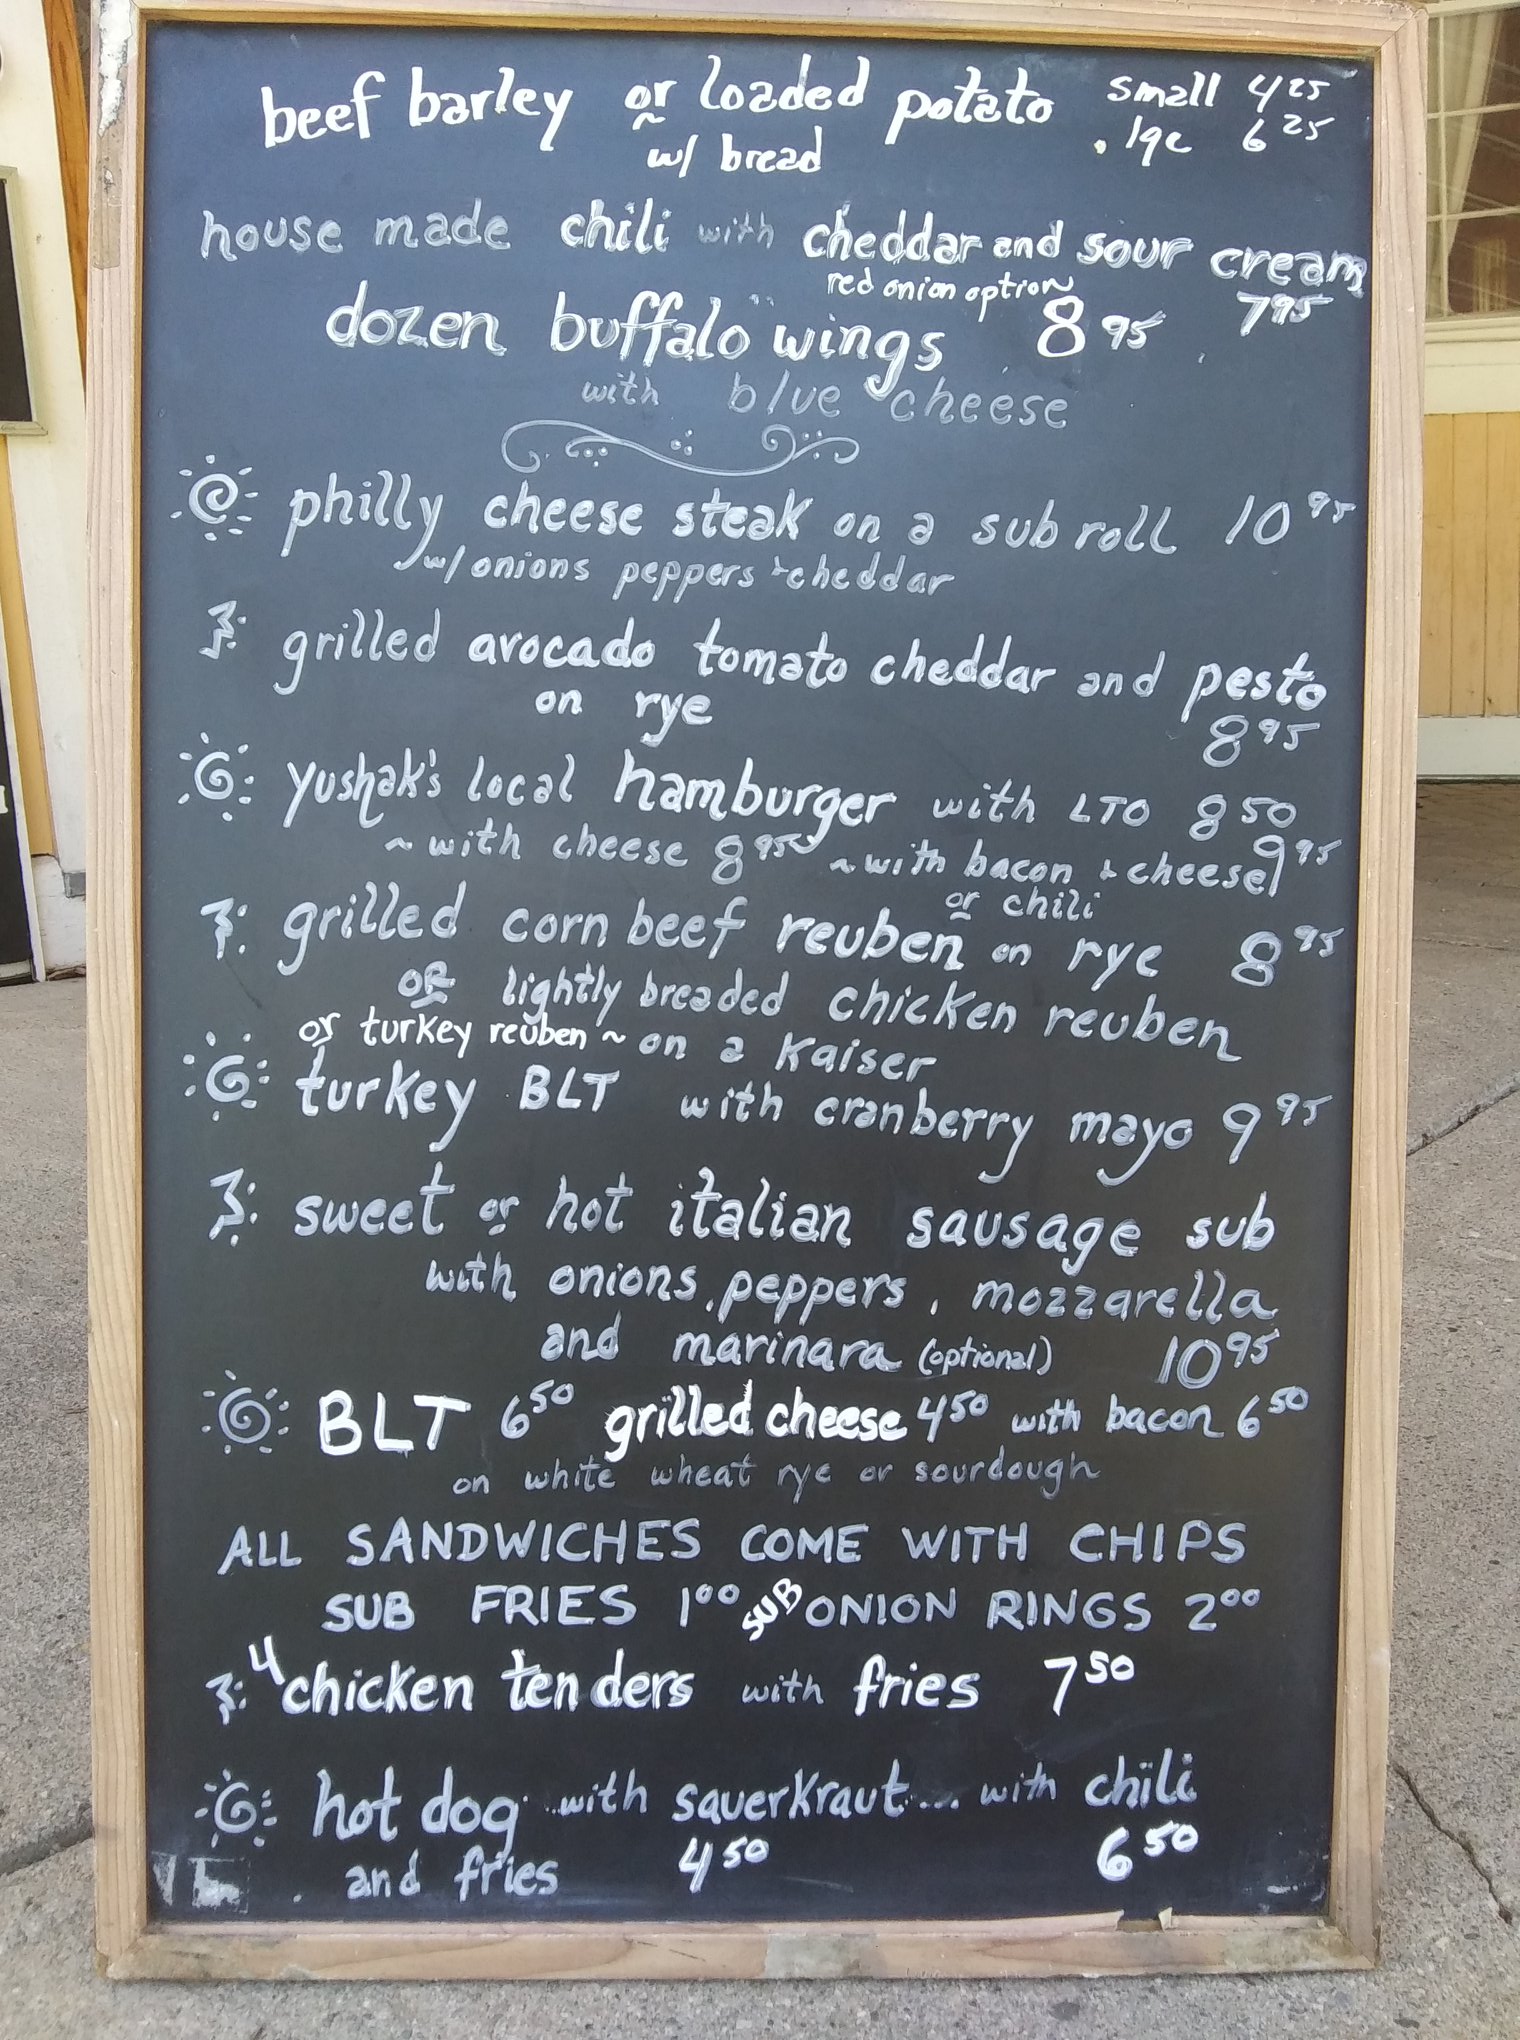 beef barley or loaded potato small 4 25
w/ bread lge 6 25
house made chili with cheddar and sour cream
red onion option 7 95
dozen buffalo wings 8 95
with blue cheese
philly cheese steak on a sub roll 10 95
w/ onions peppers + cheddar
grilled avocado tomato cheddar and pesto
on rye 8 95
yushak's local hamburger with LTO 8 50
~ with cheese 8 95 ~ with bacon + cheese 9 95
or chili
grilled corn beef reuben on rye 8 95
OR lightly breaded chicken reuben
or turkey reuben ~ on a Kaiser
turkey BLT with cranberry mayo 9 95
sweet or hot italian sausage sub
with onions, peppers, mozzarella
and marinara (optional) 10 95
BLT 6 50 grilled cheese 4 50 with bacon 6 50
on white wheat rye or sourdough
ALL SANDWICHES COME WITH CHIPS
SUB FRIES 1 00 SUB ONION RINGS 2 00
4 chicken tenders with fries 7 50
hot dog ..with sauerkraut... with chili
and fries 4 50 6 50